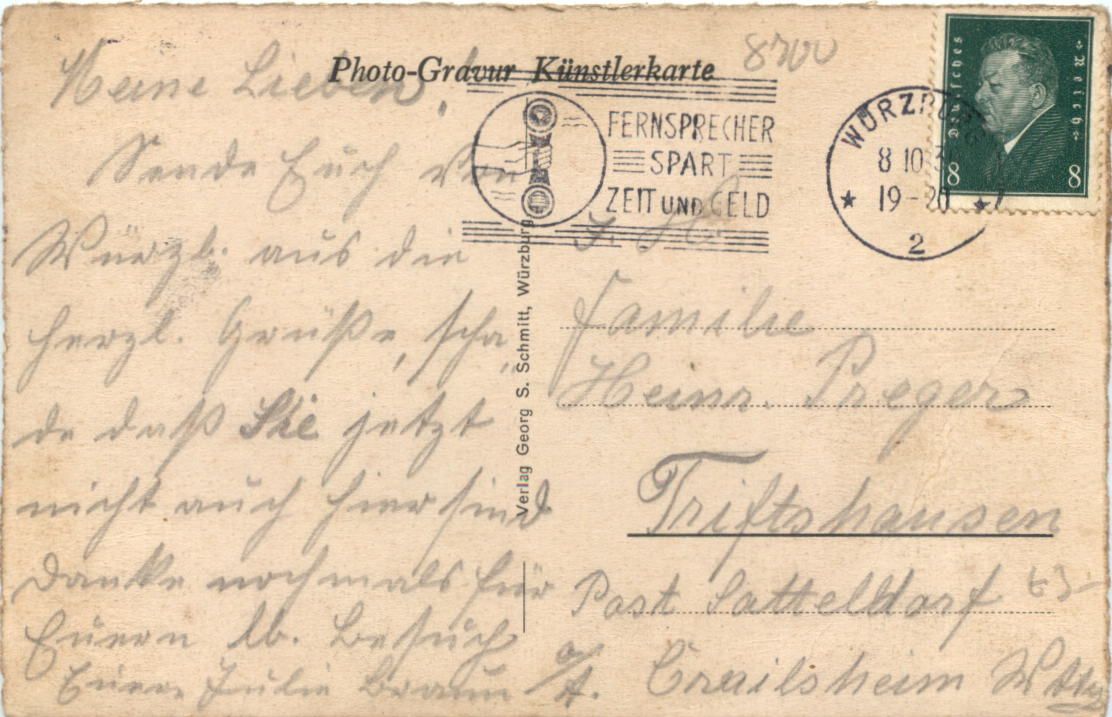 Photo-Gravur Künstlerkarte
8700
Meine Lieben!
Sende Euch von
Würzb. aus die
herzl. Grüße, scha,
de daß Sie jetzt
nicht auch hier sind
Danke nochmals für
Euern lb. Besuch
Eure Julie Braun
Verlag Georg S. Schmitt, Würzburg
FERNSPRECHER
SPART
ZEIT UND GELD
WÜRZBURG
8 10 30
19-20
2
Deutsches Reich
8 8
Familie
Heinr. Preger
Triftshausen
Post Satteldorf
Crailsheim